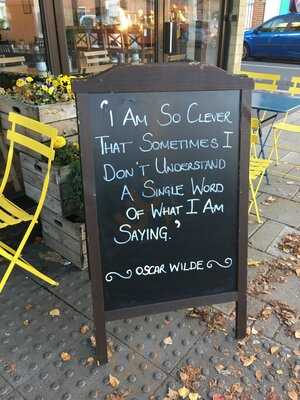 "I Am So Clever
That Sometimes I
Don't Understand
A Single Word
Of What I Am
Saying."
OSCAR WILDE